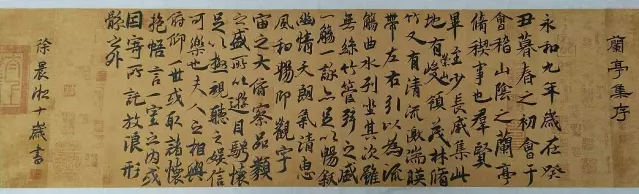 蘭亭集序
永和九年歲在癸
丑暮春之初會于
會稽山陰之蘭亭
脩稧事也羣賢
畢至少長咸集此
地有峻領茂林脩
竹又有清流激湍暎
帶左右引以為流
觴曲水列坐其次雖
無絲竹管弦之盛
一觴一詠亦足以暢敘
幽情天朗氣清惠
風和暢仰觀宇
宙之大俯察品類
之盛所以遊目騁懷
足以極視聽之娛信
可樂也夫人之相與
俯仰一世或取諸懷
抱悟言一室之內或
因寄所託放浪形
骸之外
徐晨十歲書